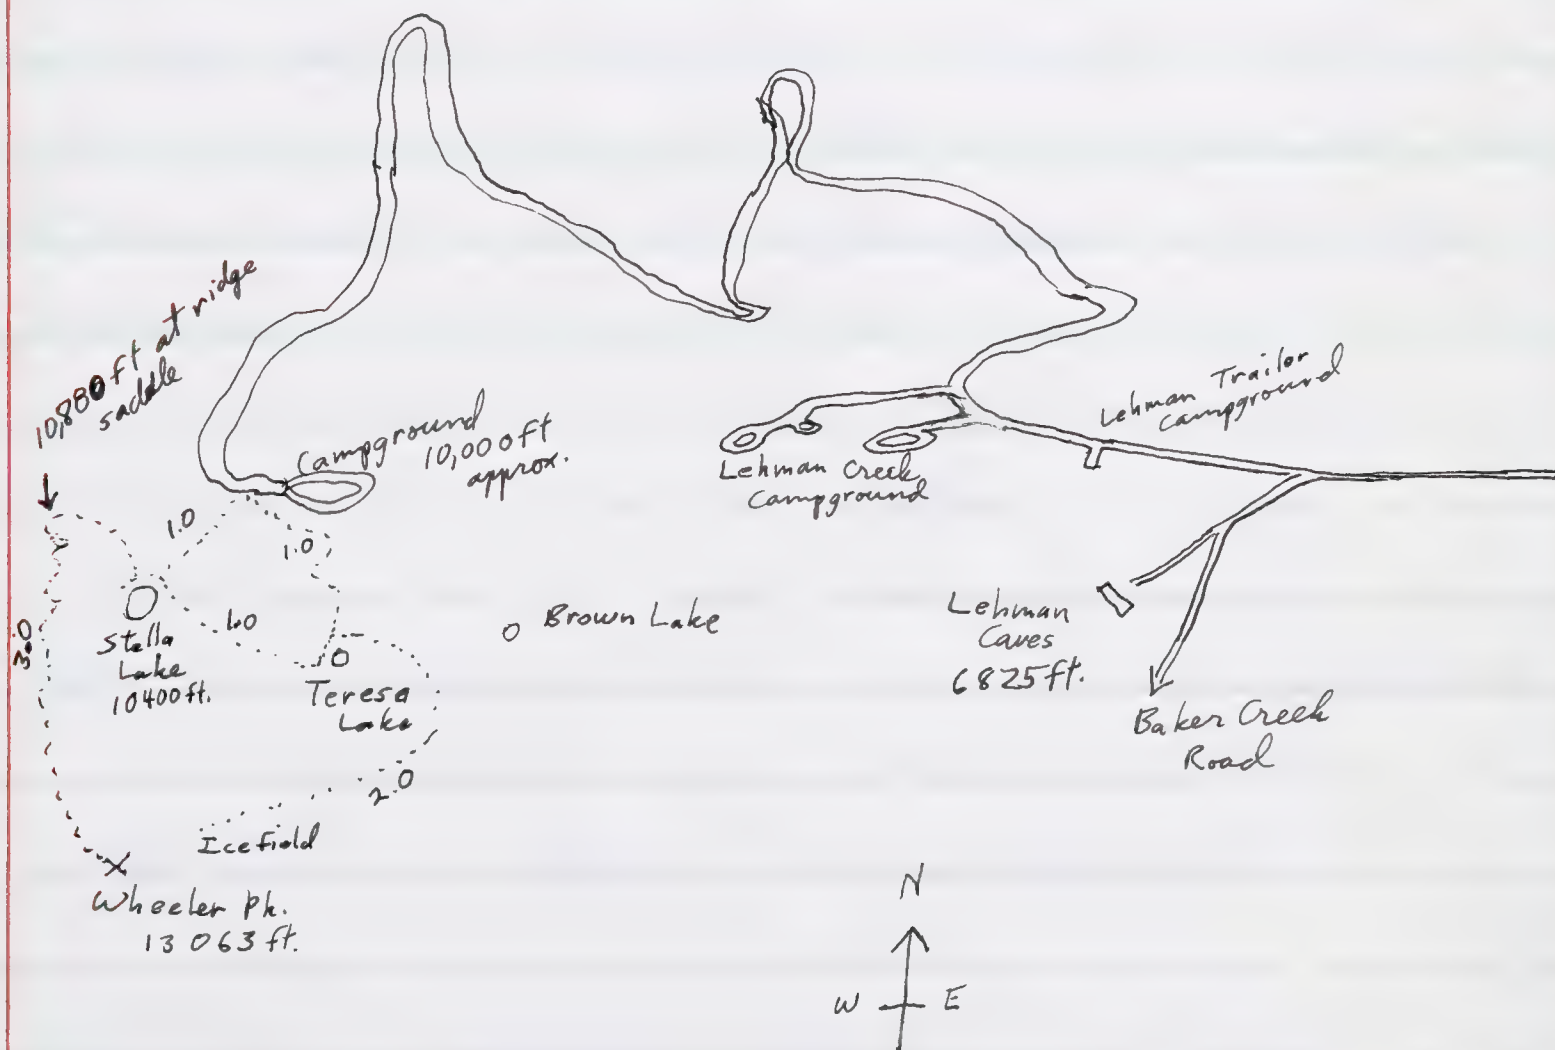 10,880 ft at ridge
saddle
Campground
10,000 ft
approx.
Lehman Trailor
Campground
Lehman Creek
Campground
1.0
1.0
1.0
3.0
Stella
Lake
10400 ft.
Teresa
Lake
Brown Lake
Lehman
Caves
6825 ft.
Baker Creek
Road
2.0
Icefield
Wheeler Pk.
13063 ft.
N
W E